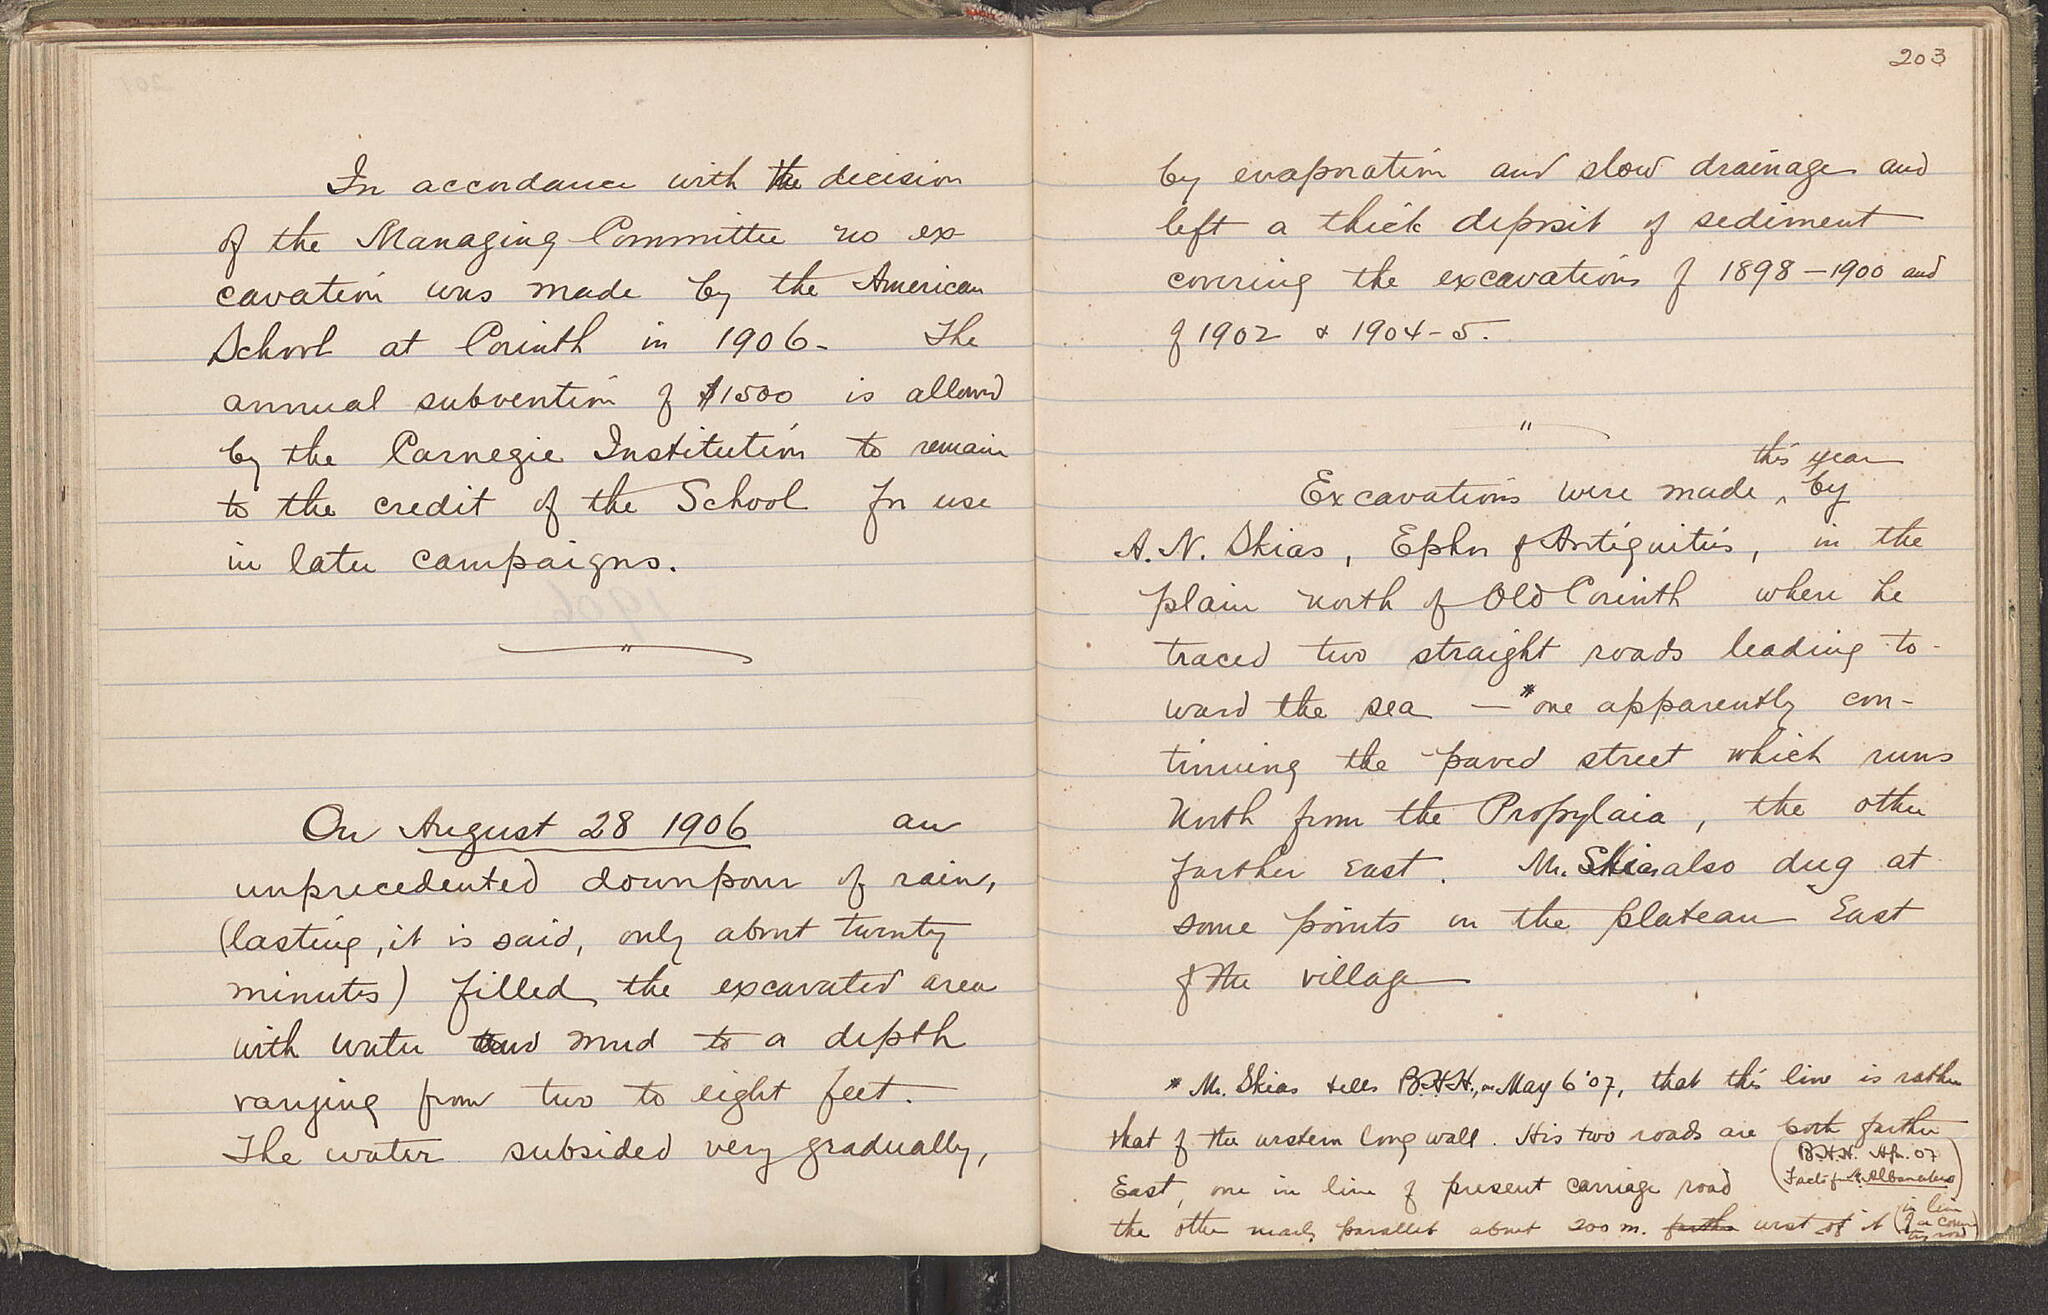 In accordance with the decision
of the Managing Committee no ex
cavation was made by the American
School at Corinth in 1906 - The
annual subvention of $1500 is allowed
by the Carnegie Institution to remain
to the credit of the School for use
in later campaigns.
"
On August 28 1906 an
unprecedented downpour of rain,
(lasting, it is said, only about twenty
minutes) filled the excavated area
with water and mud to a depth
varying from two to eight feet.
The water subsided very gradually,
203
by evaporation and slow drainage and
left a thick deposit of sediment
covering the excavations of 1898 - 1900 and
of 1902 & 1904-5.
"
this year
Excavations were made ^ by
A. N. Skias, Ephor of Antiquities, in the
plain north of Old Corinth where he
traced two straight roads leading to-
ward the sea — * one apparently con-
tinuing the paved street which runs
North from the Propylaia, the other
farther East. Mr. Skias also dug at
some points on the plateau East
of the village
* Mr. Skias tells B.H.H., on May 6 '07, that this line is rather
that of the western long wall. His two roads are both farther
(B.H.H. Apr. 07
Facts fr. A. )
East, one in line of present carriage road
the other nearly parallel about 200 m. farther west of it (in line
of a coun
try road)